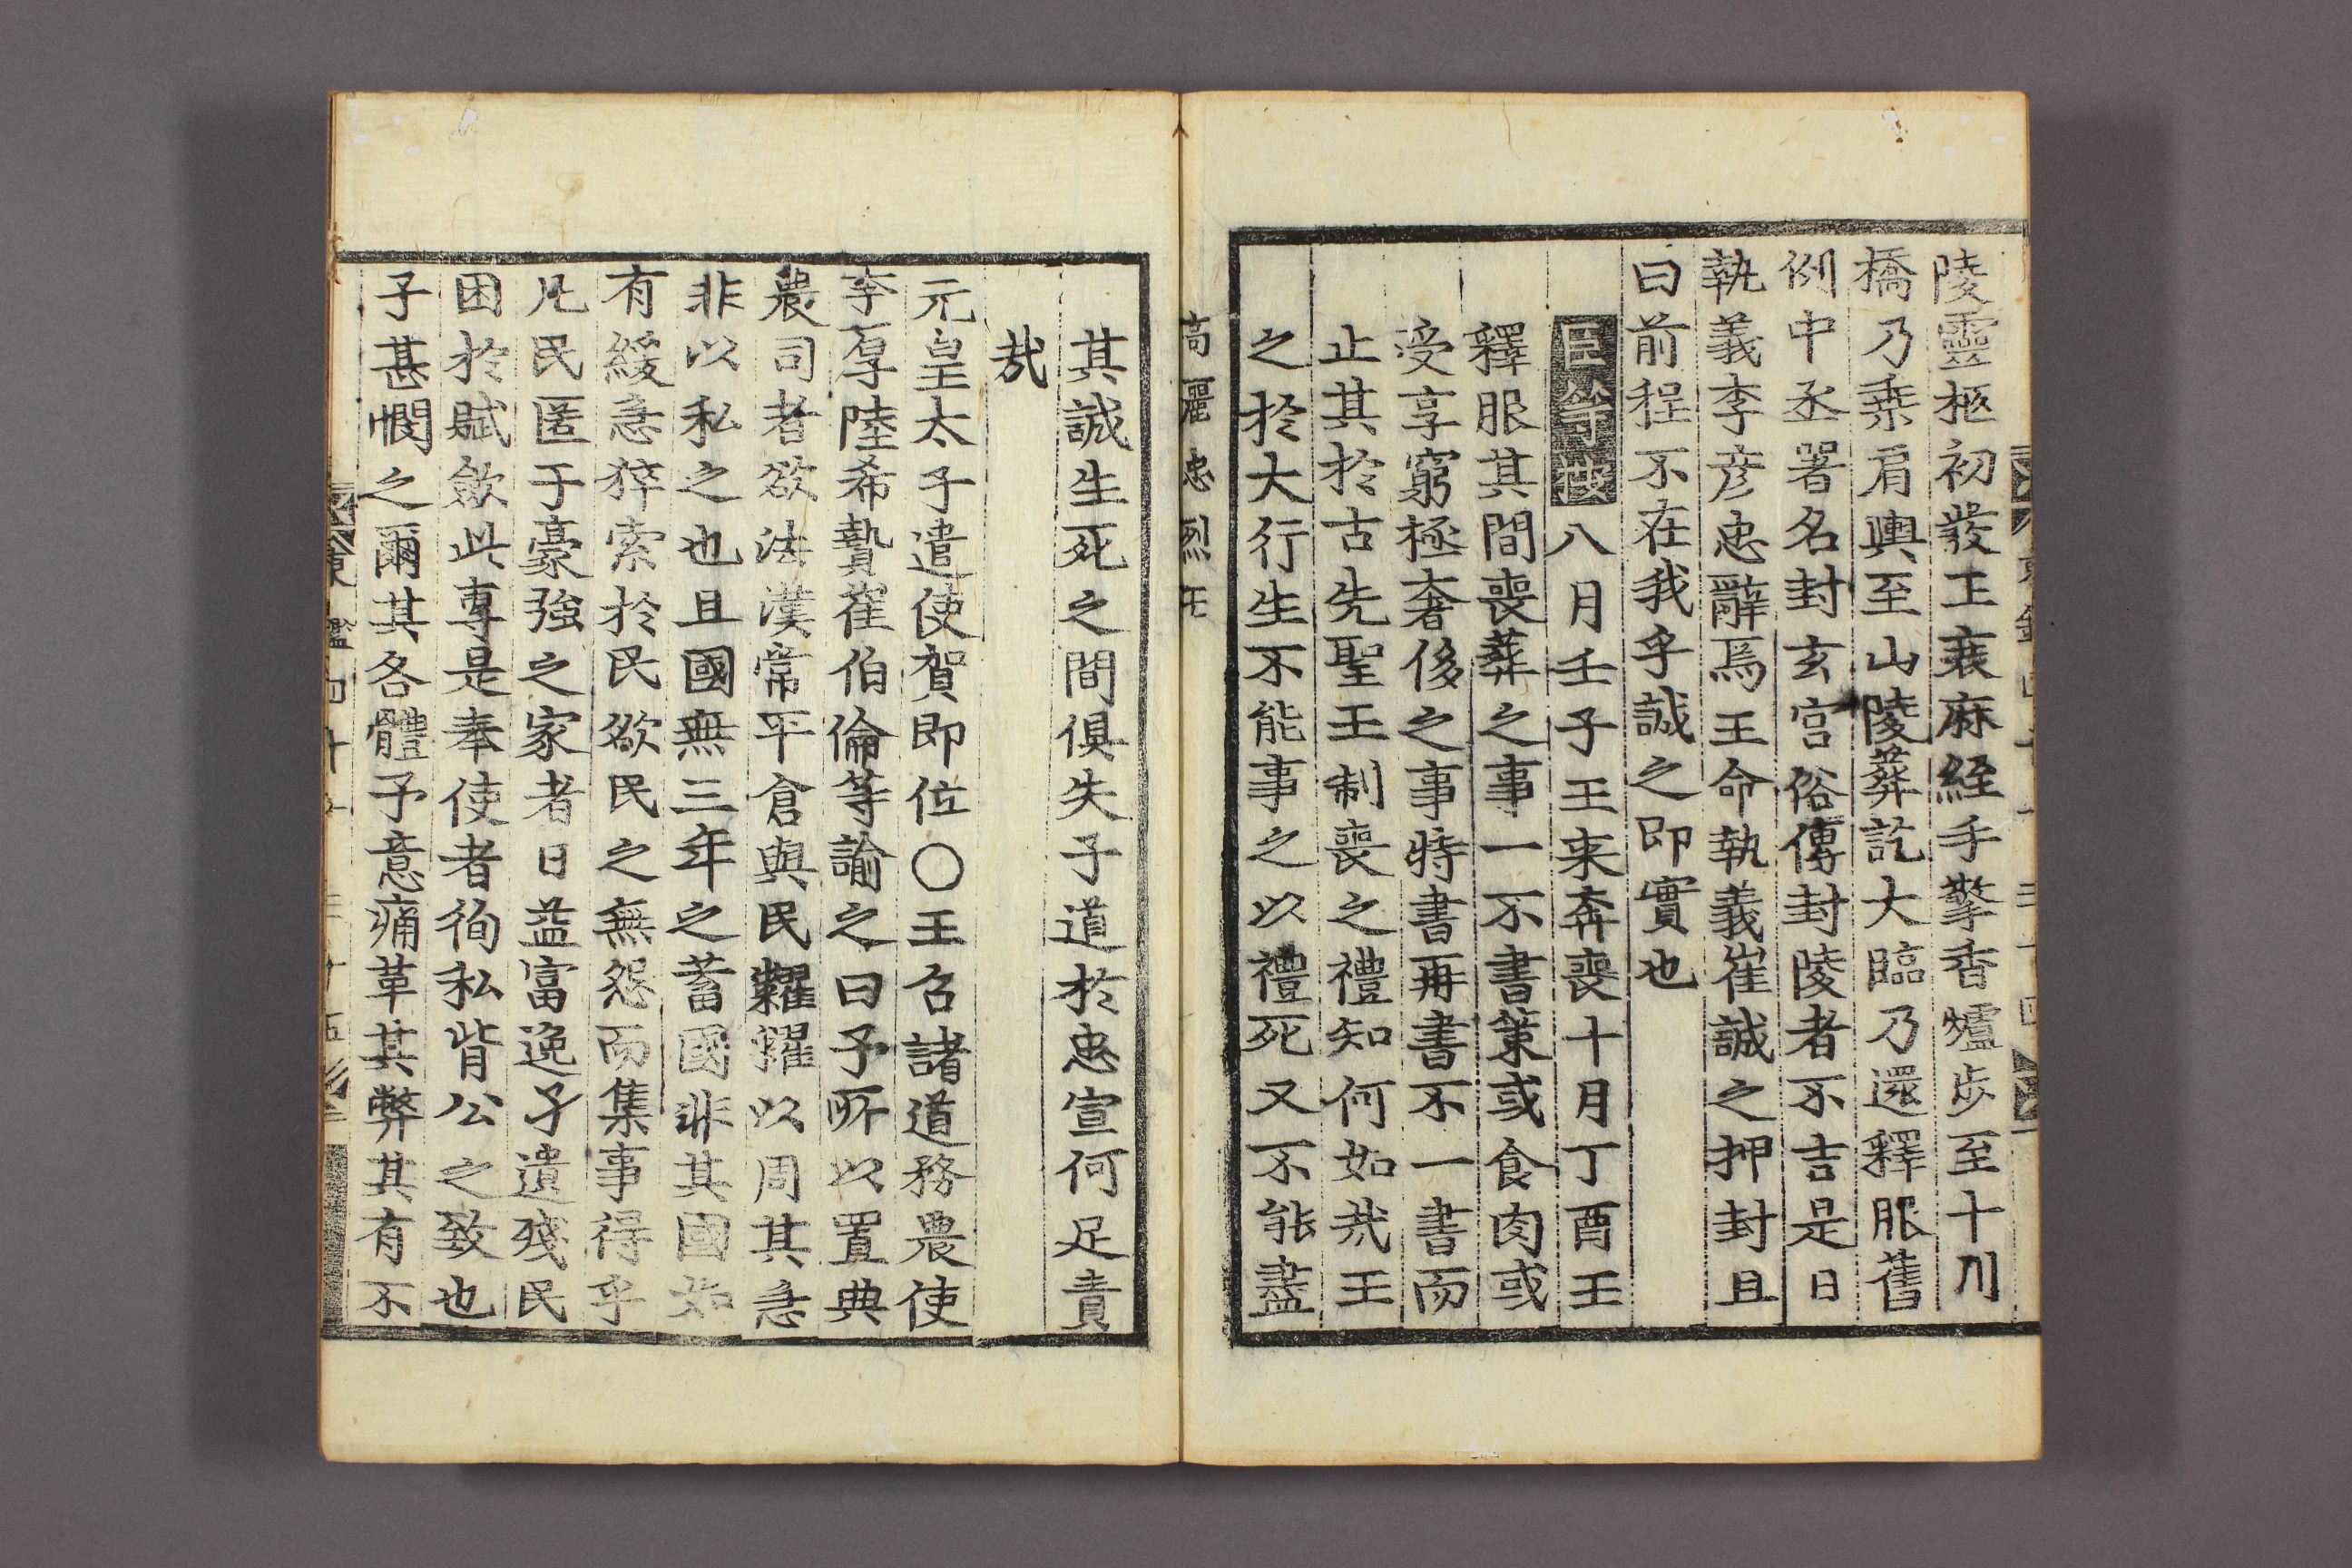 陵靈柩初發王衰麻絰手擎香爐歩至十川
橋乃乗肩輿至山陵葬訖大臨乃還釋服舊
例中丞署名封玄宫俗傳封陵者不吉是日
執義李彦忠辭焉王命執義崔誠之押封且
曰前程不在我乎誠之即實也
臣等按八月壬子王来奔喪十月丁酉王
釋服其間喪葬之事一不書策或食肉或
受享窮極奢侈之事將書再書不一書而
止其於古先聖王制喪之禮知何如㢤王
之於大行生不能事之以禮死又不能盡
高麗忠烈王
其誠生死之間俱失子道於忠宣何足責
㢤
元皇太子遣使賀即位○王召諸道務農使
李厚陸希贄崔伯倫等諭之曰予所以置典
農司者欲法漢常平倉與民糶糴以周其急
非以私之也且國無三年之蓄國非其國如
有緩急猝索於民欲民之無怨而集事得乎
凡民匿于豪強之家者日益富逸孑遺殘民
困於賦斂此專是奉使者徇私背公之致也
予甚憫之爾其各體予意痛革其弊其有不